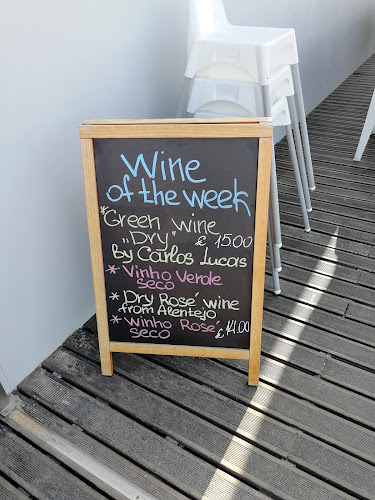 Wine
of the week
*Green wine
„Dry" £ 15.00
By Carlos Lucas
* Vinho Verde
seco
* Dry Rosé wine
from Alentejo
* Winho Rosé
seco £ 14,00